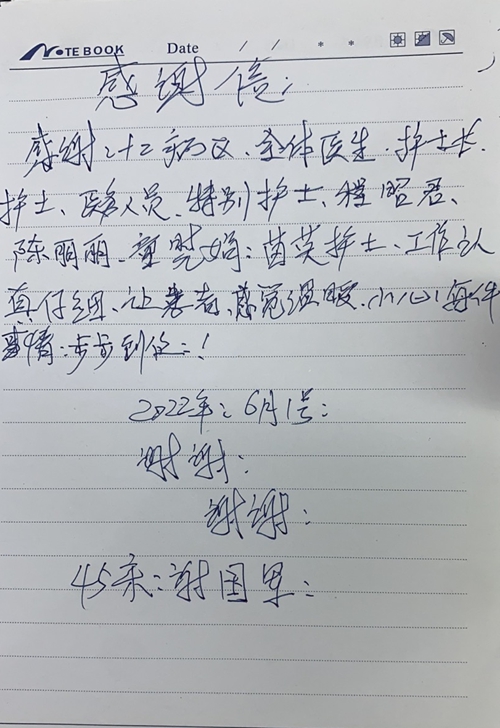 NOTE BOOK Date / / * *
感谢信:
感谢二十二病区、全体医生、护士长、
护士、医务人员、特别护士、程昭君、
陈丽丽、童 娟:茵英护士、工作认
真仔细、让患者、感觉温暖、小心每件
事情:步步到位:!
2022年:6月1号:
谢谢:
谢谢:
45床:谢国军: